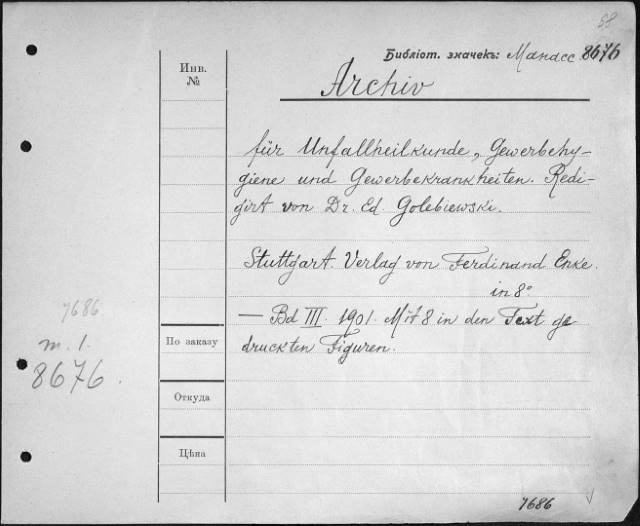 88
Библіот. значекъ: Манасс. 8676
Инв.
№
Archiv
für Unfallheilkunde, Gewerbehy-
giene und Gewerbekrankheiten. Redi-
girt von Dr. Ed. Golebiewski.
Stuttgart. Verlag von Ferdinand Enke.
in 8°
— Bd III. 1901. Mit 8 in den Text ge
druckten Figuren.
7686
т. 1.
8676.
По заказу
Откуда
Цѣна
7686